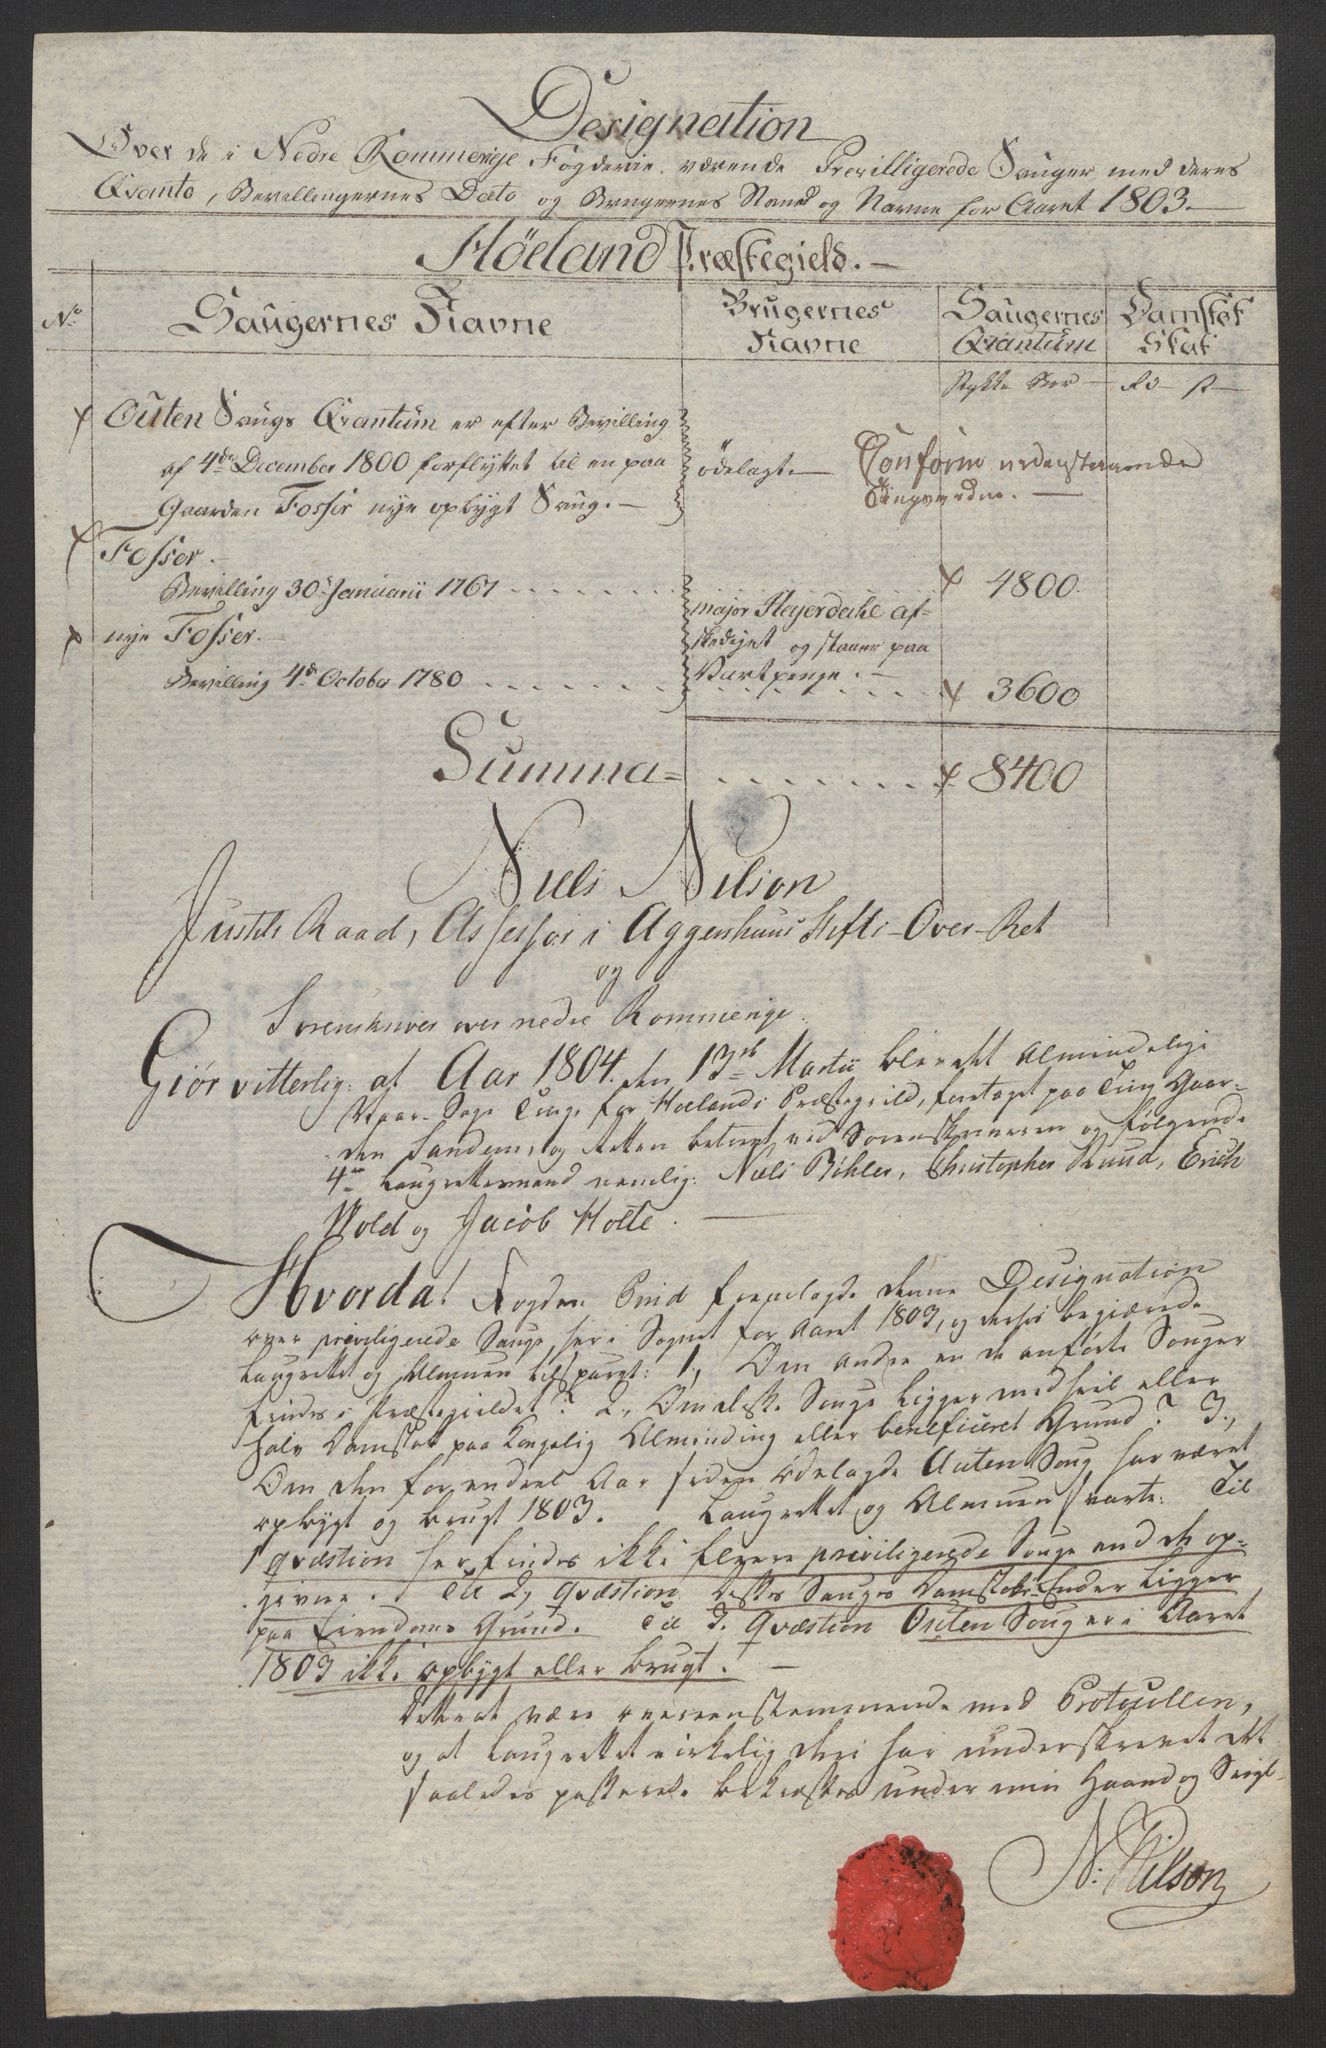 Designation
Over de i Nedre Rommerige Fogderie værende Previlligerede Sauger med deres
Qvanto, Bevillingernes Dato og Brugernes Stand og Navne for Aaret 1803.
Höeland Præstegield. —
No
Saugernes Navne
Brugernes
Navne
Saugernes
Qvantum
Damstok
Skat
Stykke Bor — Rd — s —
Outen Saugs Qvantum er efter Bevilling
af 4de December 1800 forflyttet til en paa
Gaarden Fosser nye opbygt Saug. —
ödelagt — Conform nedenstaaende
Tingsvidne. —
Fosser. —
Bevilling 30te Januarii 1767
4800.
nye Fosser. —
Bevilling 4de October 1780
major Heyerdahl af-
skediget og staaer paa
Vartpenge. —
3600
Summa = 8400
Niels Nilson
Justits Raad, Assessor i Aggershuus Stifts-Over-Ret
og
Sorenskriver over nedre Rommerige.
Giör vitterlig: at Aar 1804. den 13de Martii blev det Almindelige
Vaar-Sage Ting for Hoelands Præstegield, foretaget paa Ting Gaar-
den Sandem, og Retten betient ved Sorenskriveren og fölgende
4re Laugrettesmænd nemlig: Niels Böhler, Christopher Ruud, Erich
Wold og Jacob Holte. —
Hvorda! Fogden fremlagde denne Designation
over priviligerede Sauge her i Sognet for Aaret 1803, og derfor begiærede
Laugrettet og Almuen tilspurgt: 1., Om andre en de anförte Sauger
findes i Præstegieldet? 2., Om disse Sauge ligger med heel eller
halv Damstok paa Kongelig Alminding eller beneficeret Grund? 3.,
Om den for endeel Aar siden ödelagde Auten Saug har været
opbygt og brugt 1803. Laugrettet og Almuen svarte: Til
1 Qvæstion her findes ikke fleere priviligerede Sauge end de op-
givne. Til 2, Qvæstion, disses Sauges Damstokke Ender ligger
paa Eiendoms Grund. Til 3. Qvæstion Outen Saug er i Aaret
1803 ikke opbygt eller brugt. —
Dette at være overeensstemmende med Protocollen,
og at Laugrettet virkelig deri har underskrevet det
saaledes passerede bekræftes under min Haand og Seigl.
N: Nilson